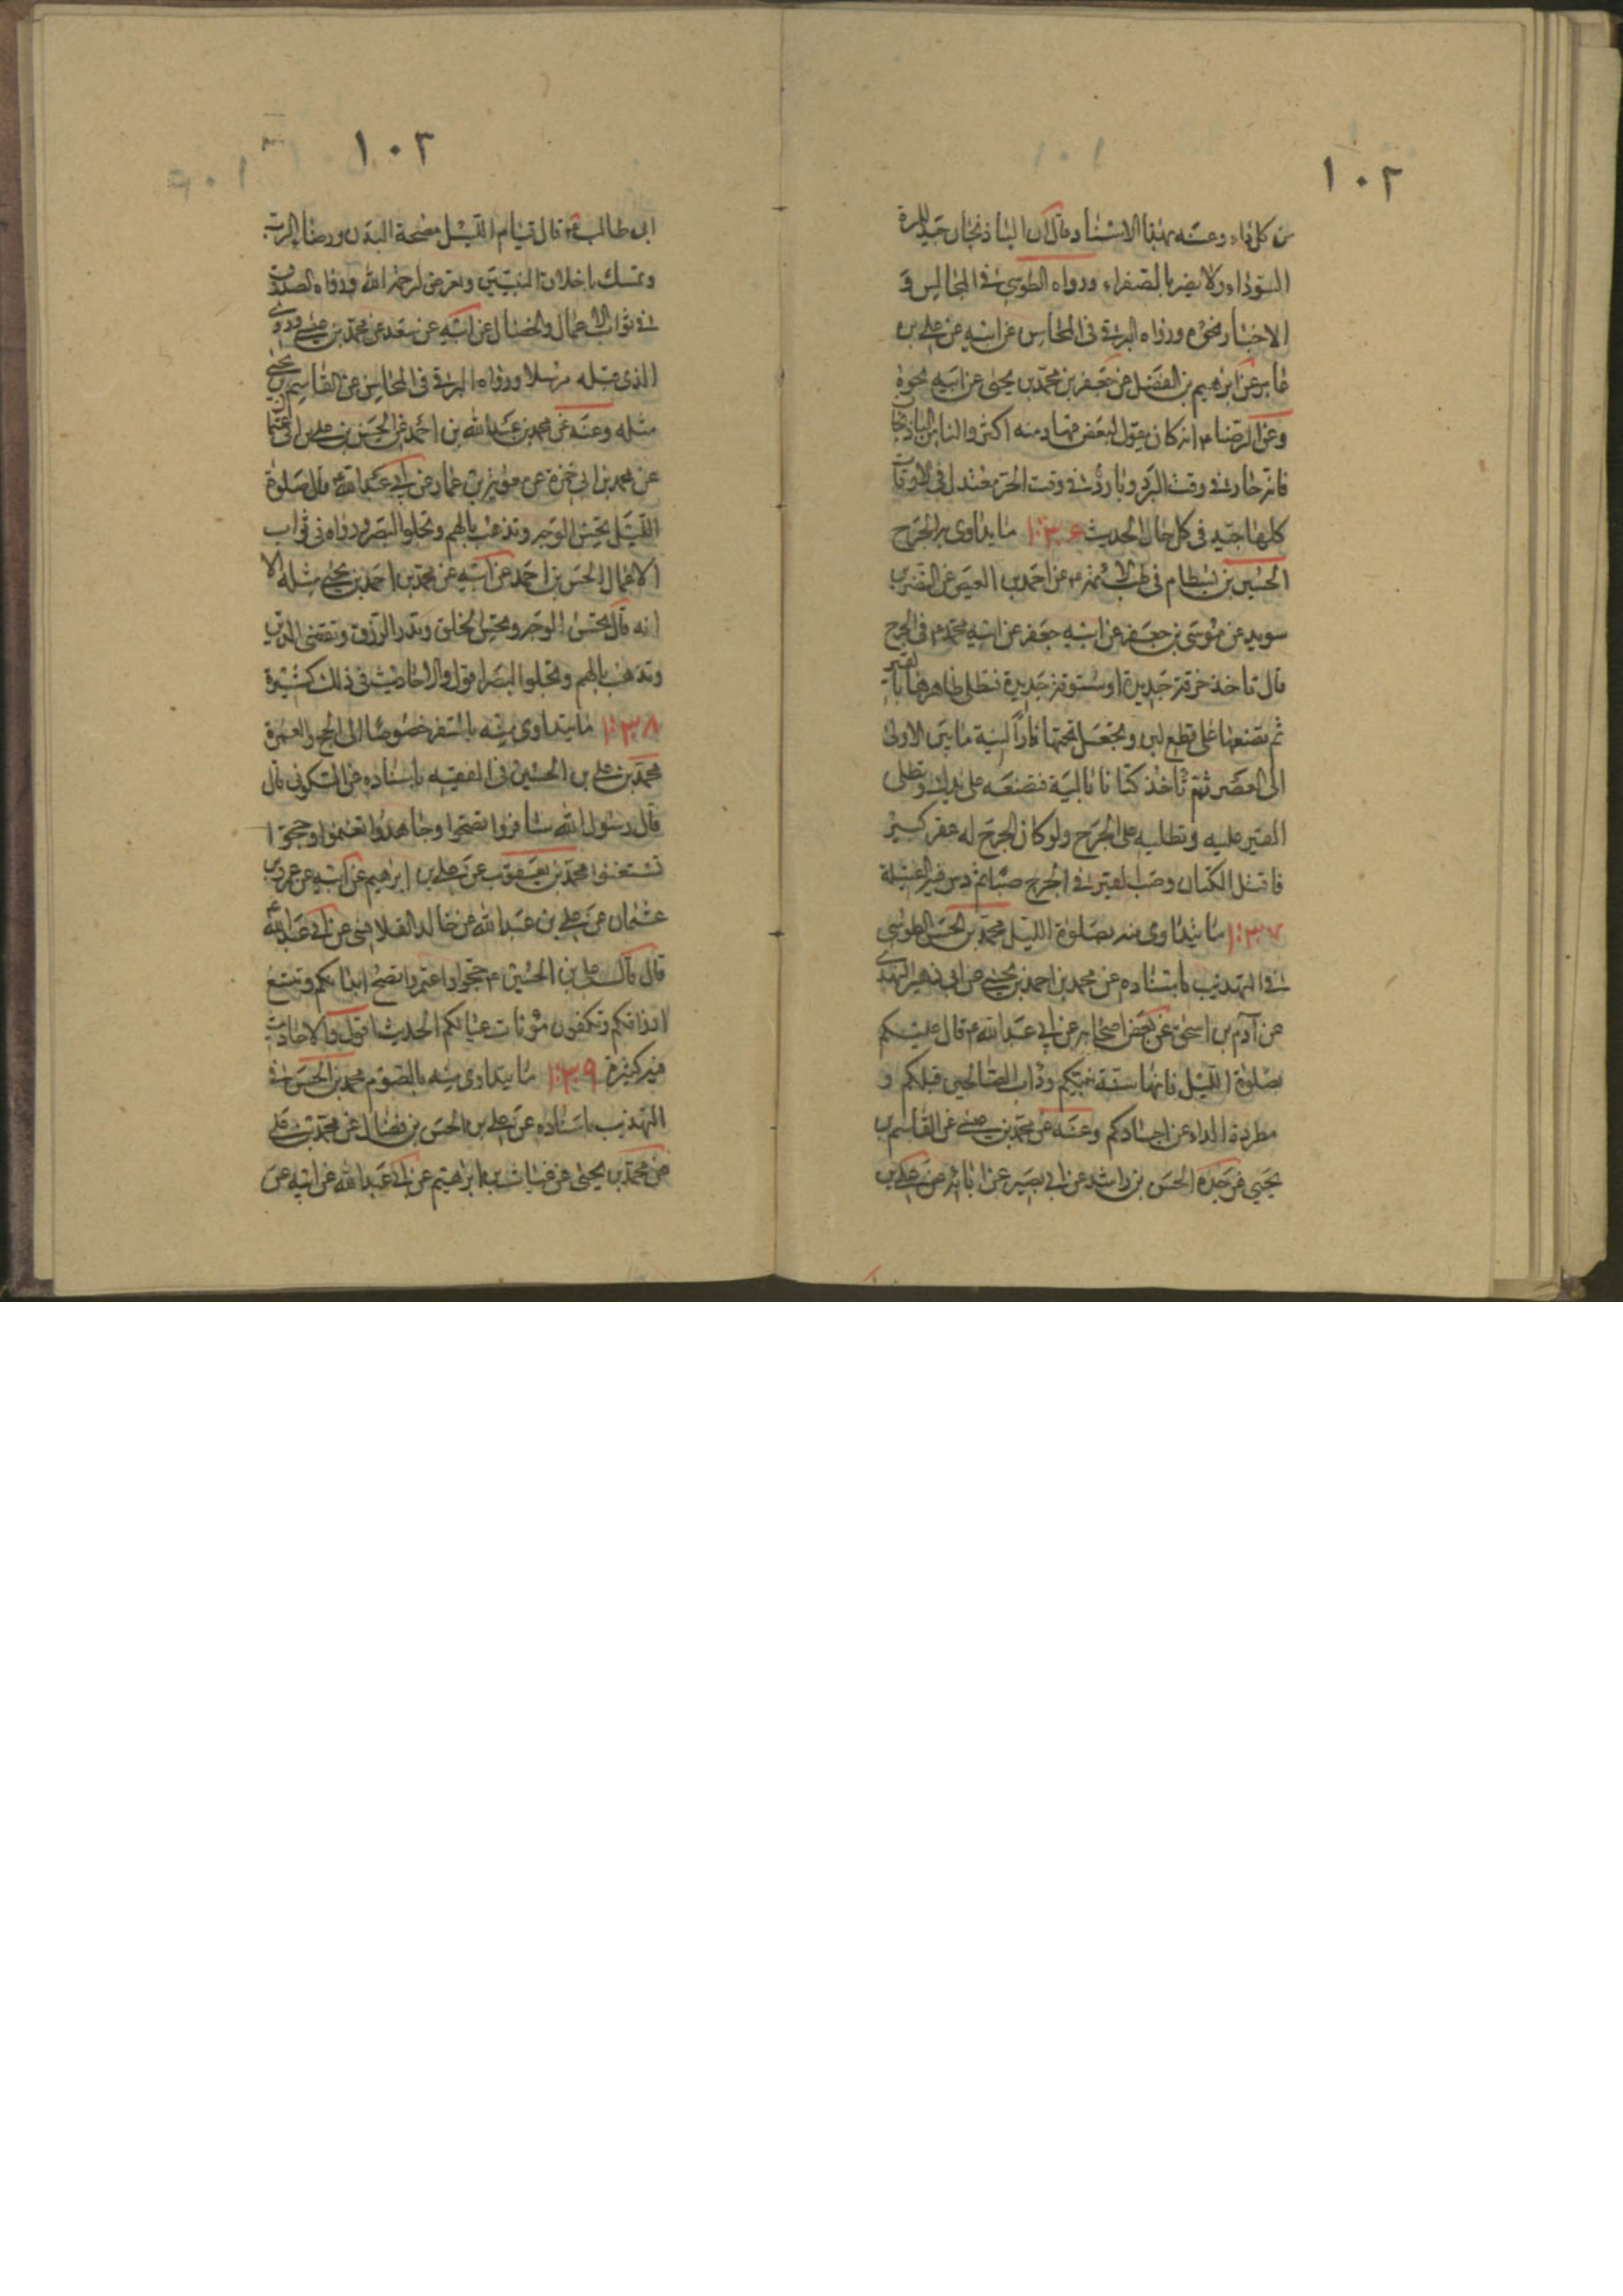 ١٠٢
من كل داء وعنه بهذا الاسناد قال ان الباذنجان جيد للمرة
السوداء ولا يضر بالصفراء ورواه الطوسي في المجالس و
الاخبار نحوه ورواه البرقي في المحاسن عن ابيه عن علي بن
عامر عن ابرهيم بن الفضل عن جعفر بن محمد بن يحيى عن ابيه نحوه
وعن الرضا ع انه كان يقول لبعض قهارمته اكثر والنا من الباذنجان
فانه حار في وقت البرد وبارد في وقت الحر معتدل في الاوقات
كلها جيد في كل حال الحديث ١٠٣٦ ما يداوى به الجرح
الحسين بن بسطام في طب الائمة ع عن احمد بن العيص عن النضر بن
سويد عن موسى بن جعفر عن ابيه جعفر عن ابيه محمد ع في الجرح
قال تاخذ خرقة جديدة او ستوقة جديدة فتطلى ظاهرها بالقير
ثم تضعها على قطع لبن وتجعل تحتها نارا لينة ما بين الاولى
الى العصر ثم تاخذ كتانا بالية فتضعه على يدك وتطلى
القير عليه وتطليه على الجرح ولو كان الجرح له قعر كبير
فافتل الكتان وصب القير في الجرح صبا ثم دس فيه الفتيلة
١٠٣٧ ما يتداوى منه بصلوة الليل محمد بن الحسن الطوسي
في التهذيب باسناده عن محمد بن احمد بن يحيى عن ابي زهير النهدي
عن آدم بن اسحق عن بعض اصحابه عن ابي عبد الله ع قال عليكم
بصلوة الليل فانها سنة نبيكم وداب الصالحين قبلكم و
مطردة الداء عن اجسادكم وعنه عن محمد بن عيسى عن القاسم بن
يحيى عن جده الحسن بن راشد عن ابي بصير عن ابائه عن علي بن
١٠٢
ابي طالب ع قال قيام الليل مصحة البدن ورضا الرب
وتمسك باخلاق النبيين وتعرض لرحمة الله ورواه الصدوق
في ثواب الاعمال والخصال عن ابيه عن سعد عن محمد بن عيسى وروى
الذي قبله مرسلا ورواه البرقي في المحاسن عن القاسم بن يحيى
مثله وعنه عن محمد بن عبد الله بن احمد عن الحسن بن علي بن ابي عثمان
عن محمد بن ابي حمزة عن معوية بن عمار عن ابي عبد الله ع قال صلوة
الليل تحسن الوجه وتذهب بالهم وتجلو البصر ورواه في ثواب
الاعمال الحسن بن احمد عن ابيه عن محمد بن احمد بن يحيى مثله الا
انه قال تحسن الوجه وتحسن الخلق وتدر الرزق وتقضى الدين
وتذهب بالهم وتجلوا البصر اقول والاحاديث في ذلك كثيرة
١٠٣٨ ما يتداوى منه بالسفر خصوصا الى الحج والعمرة
محمد بن علي بن الحسين في الفقيه باسناده عن السكوني قال
قال رسول الله سافروا تصحوا وجاهدوا تغنموا وحجوا
تستغنوا محمد بن يعقوب عن علي بن ابرهيم عن ابيه عن عمرو بن
عثمان عن علي بن عبد الله عن خالد القلانسي عن ابي عبد الله ع
قال قال علي بن الحسين ع حجوا واعتمروا تصح ابدانكم وتتسع
ارزاقكم وتكفون مؤنات عيالكم الحديث اقول والاحاديث
فيه كثيرة ١٠٣٩ ما يتداوى منه بالصوم محمد بن الحسن في
التهذيب باسناده عن علي بن الحسن بن فضال عن محمد بن علي
عن محمد بن يحيى عن غياث بن ابرهيم عن ابي عبد الله عن ابيه عن